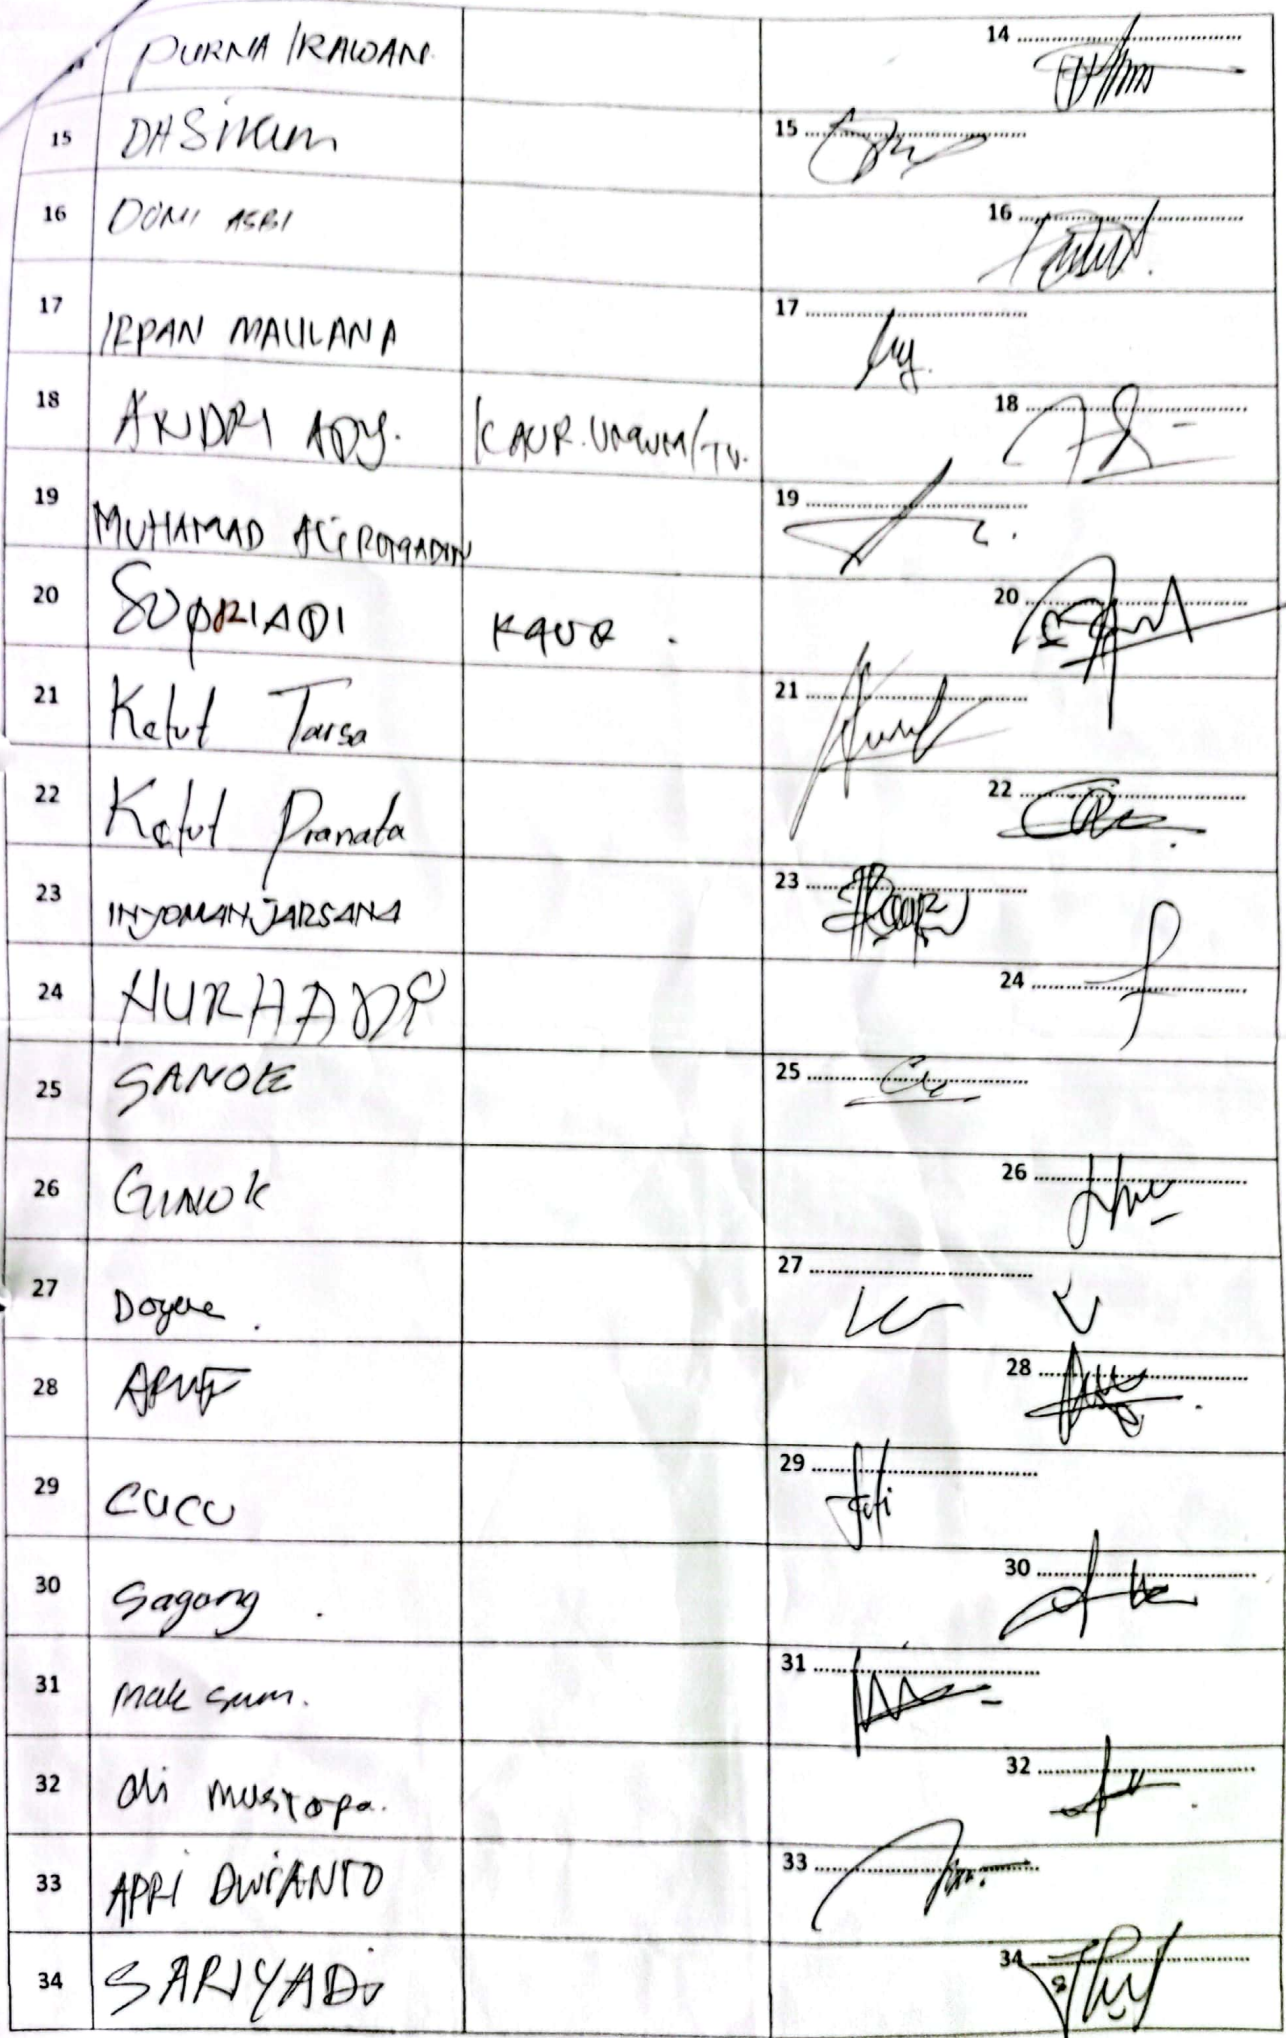 PURNA IRAWAN. 14
15 DASIKUM 15
16 DONI ASBI 16
17 IRPAN MAULANA 17
18 ANDRI ADY. KAUR.UMUM/TU. 18
19 MUHAMAD 19
20 SUPRIADI KAUR . 20
21 Ketut Tarsa 21
22 Ketut Pranata 22
23 INYOMAN JARSANA 23
24 NURHADI 24
25 SANOK 25
26 GINOK 26
27 27
28 28
29 CUCU 29
30 Sagang . 30
31 Mak sum. 31
32 Ali Mustopa. 32
33 APRI DWIANTO 33
34 SARIYADI 34